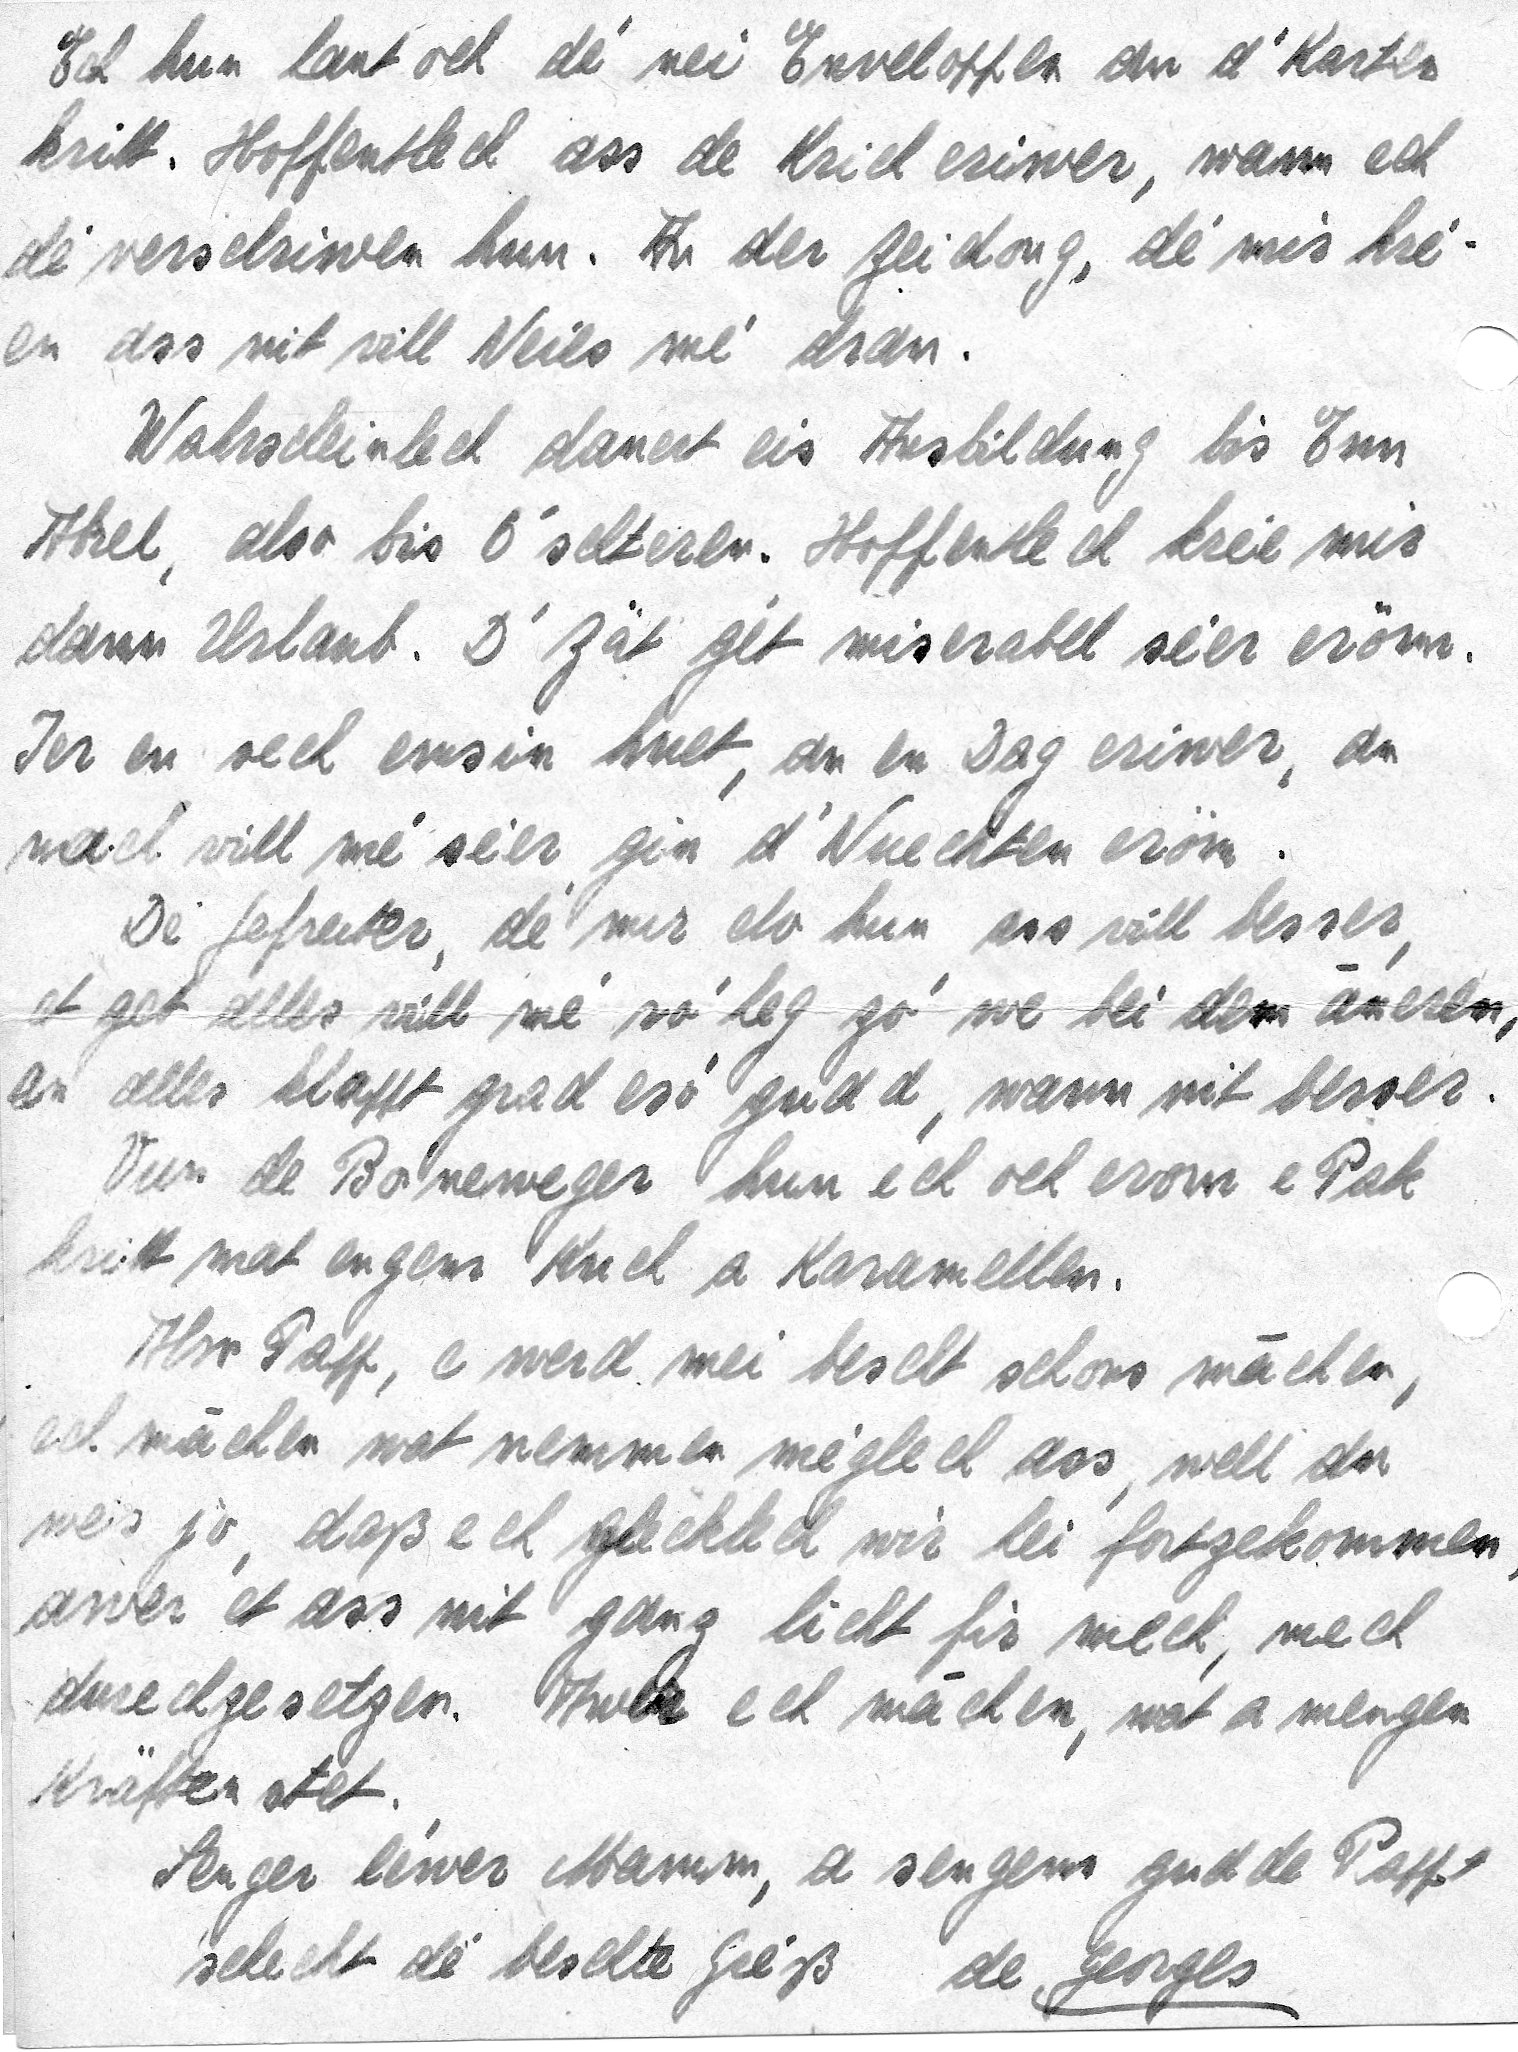 Ech hun laut och dé nei Enveloppen an d'Karten
kritt. Hoffentlech ass de Krich eriwer, wann ech
dé verschriwen hun. An der Zeidong, dé mir kré-
en ass nit vill Neies mé dran.
Wahrscheinlech dauert eis Ausbildung bis Enn
Abrel, also bis O'schteren. Hoffentlech kréie mir
dann Urlaub. D'Zät gét miserabel séier eröm.
Ier en sech emsin huet, an en Dag eriwer, an
nach vill mé séier gin d'Nuechten eröm.
De Gefreiter, dé mir elo hun ass vill besser,
et get alles vill mé ró'heg zó we bei dem āneren,
an alles klappt grad esó gudd, wann nit besser.
Vun de Bo'neweger hun ech och erom e Pak
kritt mat engem Kuch a Karamellen.
Also Papp, e werd mei bescht schons māchen,
ech māchen wat nemmen méglech ass, well du
wes jo, daß ech glecklech wir hei fortzekommen,
awer et ass nit ganz licht fir mech, mech
durechzesetzen. Awer ech māchen, wat a mengen
Kräften stet.
Senger léiwer Mamm, a sengem gudde Papp
schecht dé beschte Gréiß de Georges